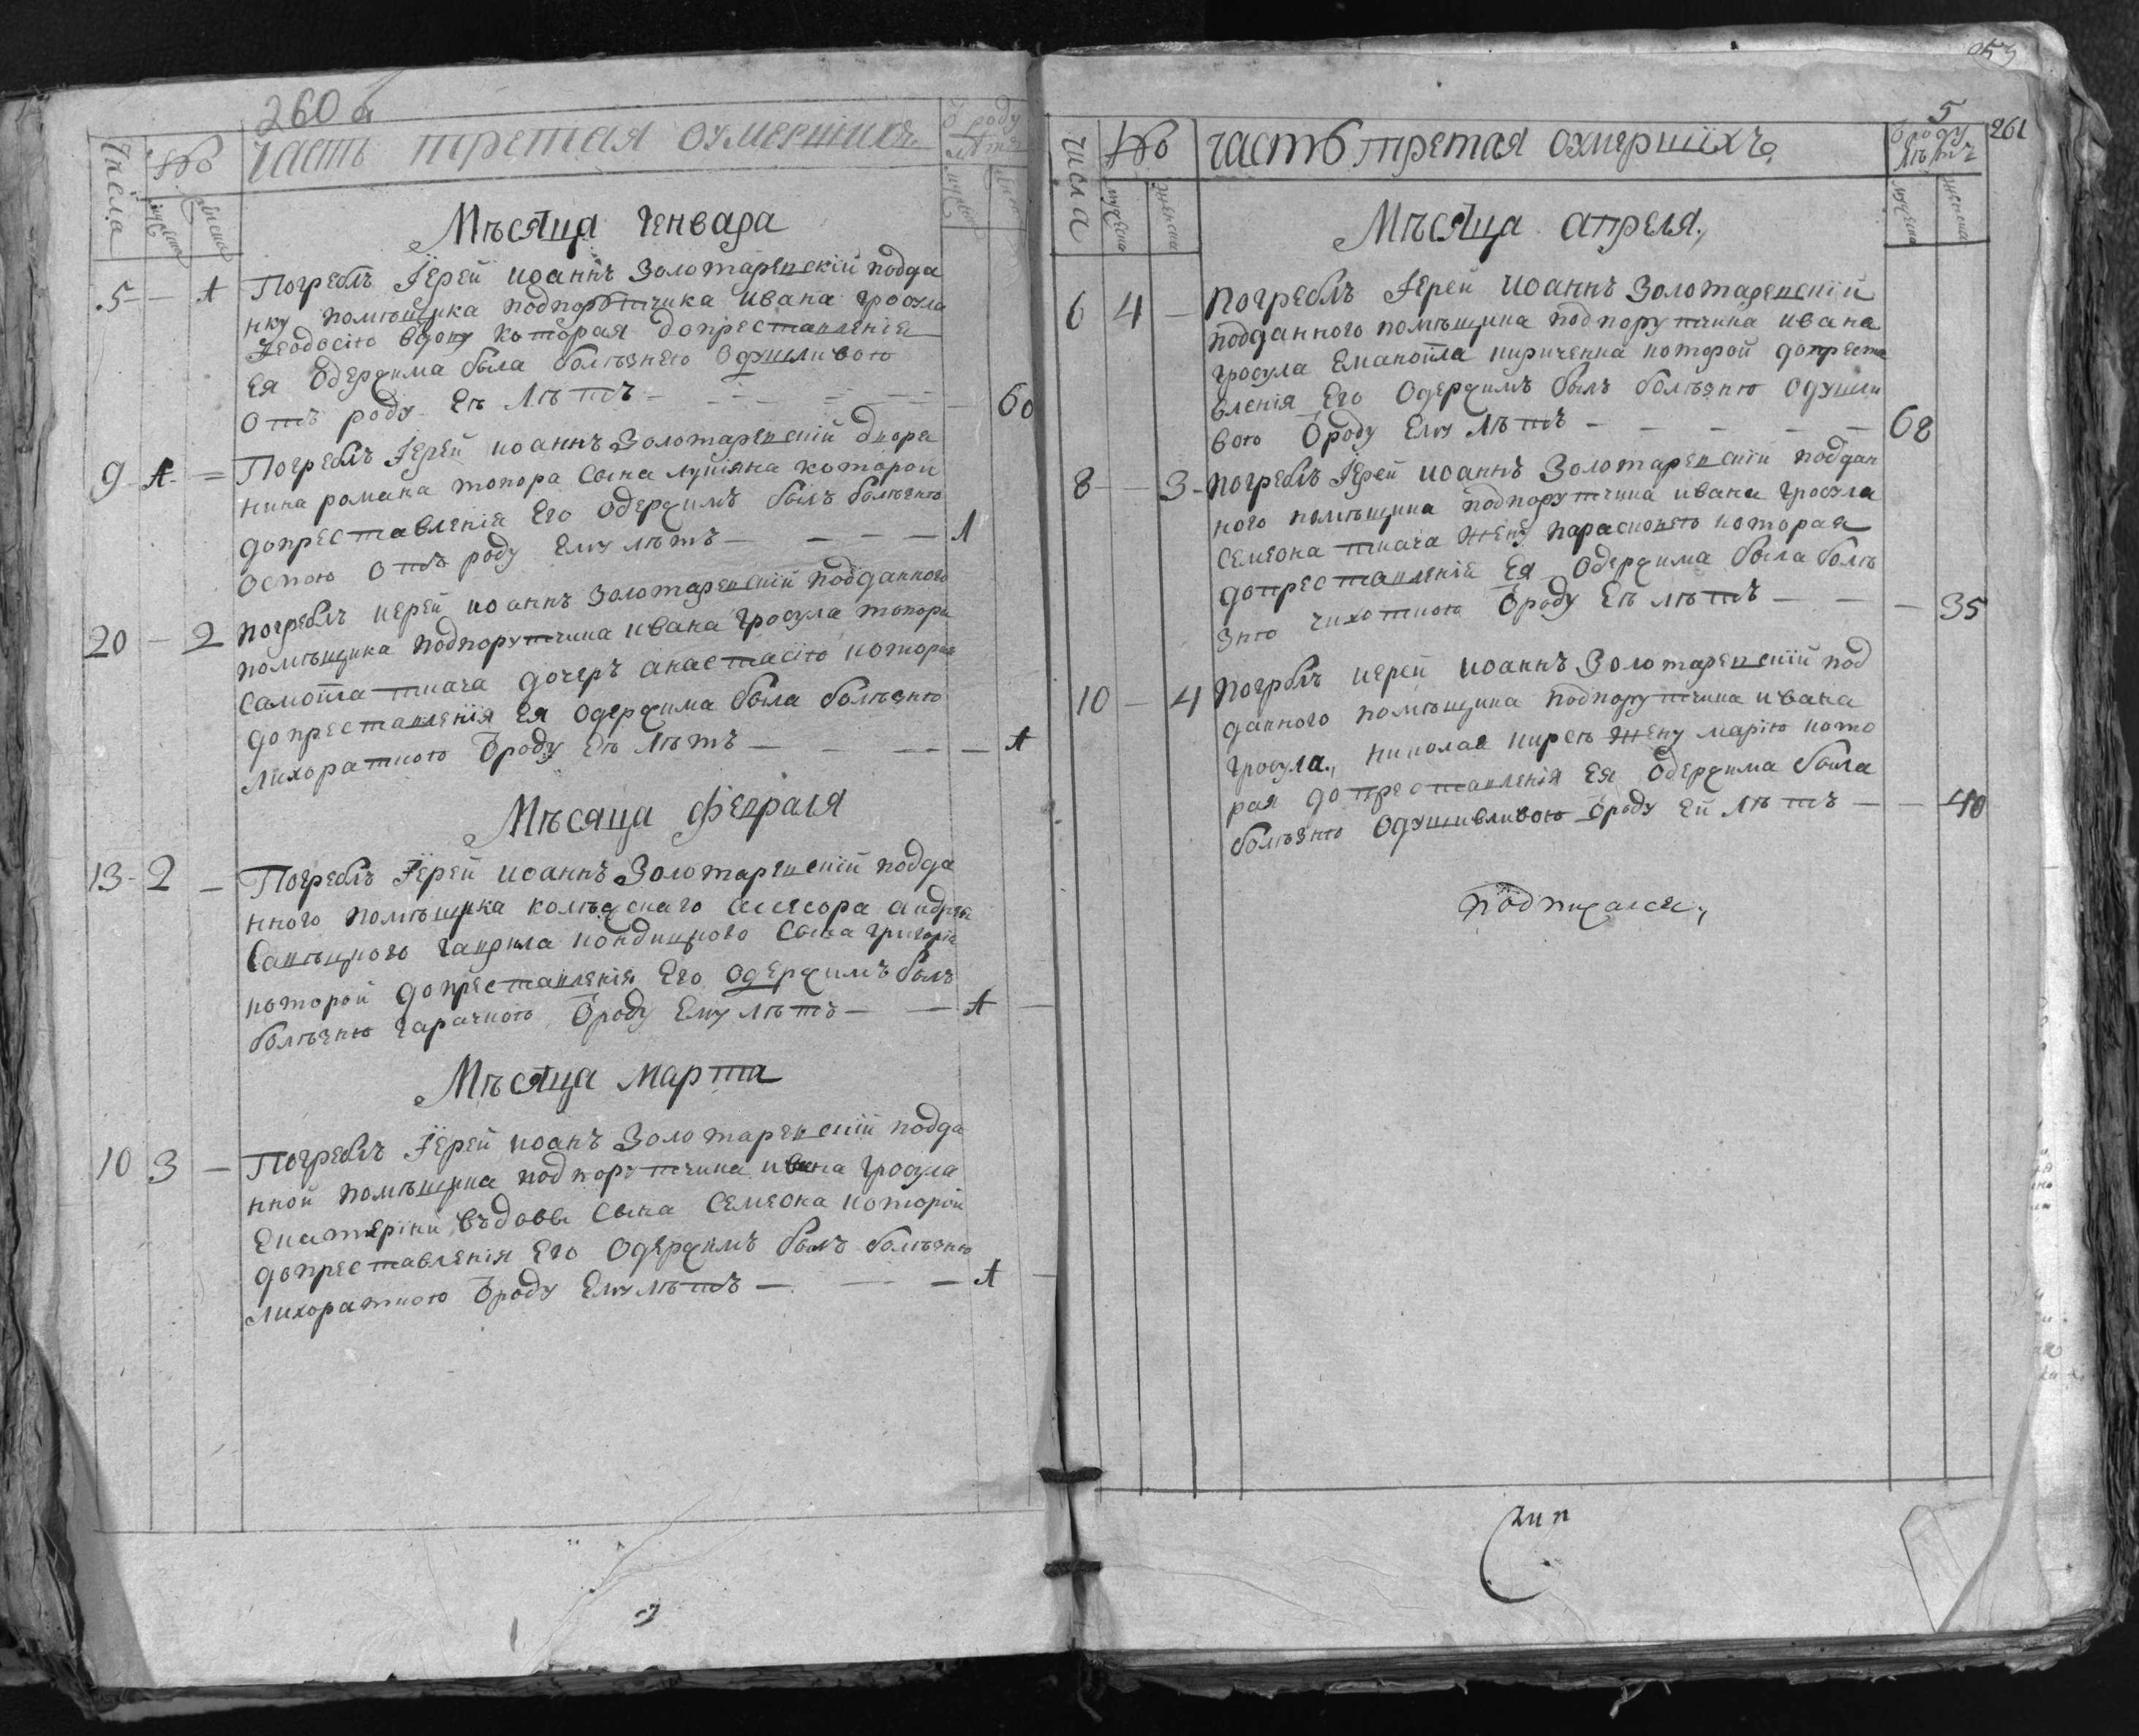 260 б
Числа № часть третая оумершихъ Ѿ роду лѣтъ
мужеска женска
Мѣсяца Генвара
5 — 1 Погреблъ Іерей иоаннъ Золотаревскій подда
нку помѣщика подпорутчика ивана гросула
Феодосію вдову которая допреставленія
Ея Одержима была болѣзнею Одушливою
Отъ роду Еѣ Лѣтъ — 60
9 1 — Погреблъ Іерей иоаннъ Золотаревскій двора
нина романа топора Сына лукіяна которой
допреставленія Его Одержимъ былъ болезнію
оспою Отъ роду Ему лѣтъ — 1
20 — 2 погреблъ иерей иоаннъ Золотаревскій подданного
помѣщика подпорутчика ивана гросула топора
Самоила ткача дочерь анастасію котора
допреставленія Ея Одержима была болѣзнію
лихораткою Ѿроду Еѣ Лѣтъ — 1
Мѣсяца Февраля
13 2 — Погреблъ Іерей иоаннъ Золотаревскій подда
нного помѣщика колѣжскаго ассесора андрея
гаврила Сына григорія
которой допреставленія Его Одержимъ былъ
болѣзнію гарачкою Ѿроду Ему лѣтъ — 1
Мѣсяца Марта
10 3 — Погреблъ Іерей иоанъ Золотаревскій подда
нной помѣщика подпорутчика ивана гросула
Екатерини въдовы Сына Семеона которой
допреставленія Его Одержимъ былъ болѣзнію
лихораткою Ѿроду Ему лѣтъ — 1
053
5
261
числа № часть третая оумершихъ Ѿ роду лѣтъ
мужеска женска мужеска женска
Мѣсяца апреля.,
6 4 — погреблъ Іерей иоаннъ Золотаревскій
подданного помѣщика подпорутчика ивана
гросула Еманоила кириченка которой допреста
вленія Его Одержимъ былъ болѣзнію Одушли
вою Ѿроду Ему Лѣтъ — 68
8 — 3 погреблъ Іерей иоаннъ Золотаревскій поддан
ного помѣщика подпорутчика ивана гросула
Семеона ткача жену парасковею которая
допреставленія Ея Одержима была болѣ
знію чихоткою Ѿроду Еѣ лѣтъ — 35
10 — 4 погрблъ иерей иоаннъ Золотаревскій под
данного помѣщика подпорутчика ивана
гросула., николая кирсѣ жену марію кото
рая допреставленія Ея Одержима была
болѣзнію Одушивливою Ѿроду Ей Лѣтъ — 40
подписался,